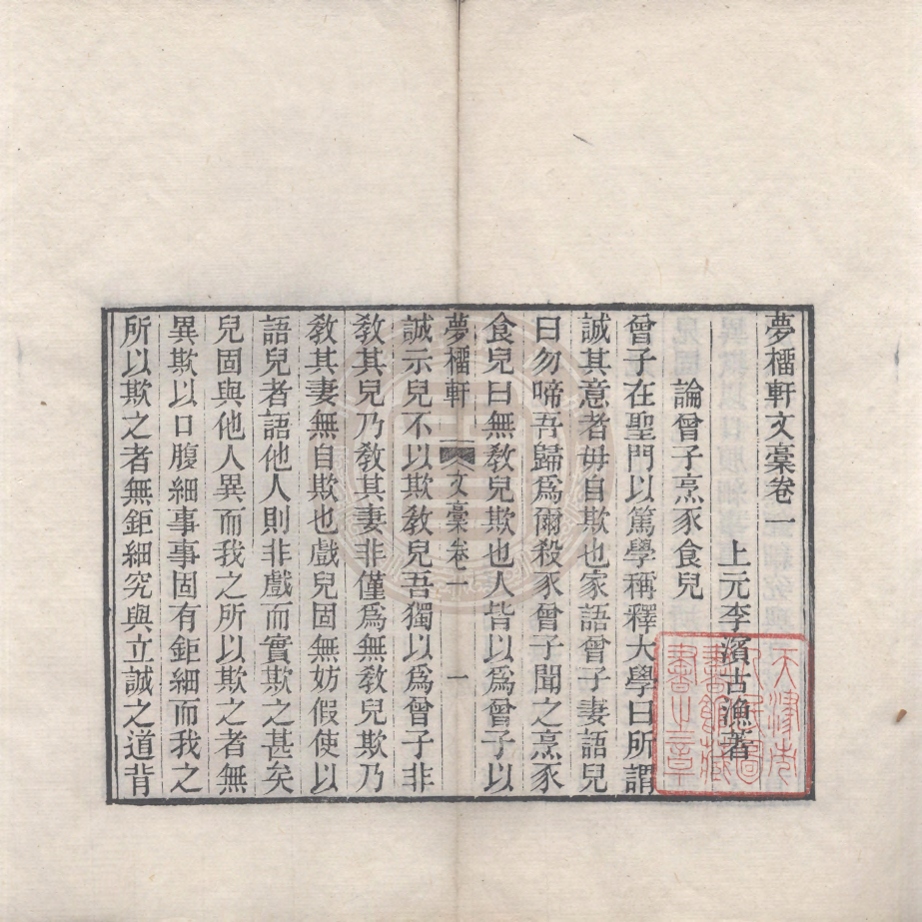 夢櫺軒文稾卷一
上元李濱古漁著
論曾子烹豕食兒
曾子在聖門以篤學稱釋大學曰所謂
誠其意者毋自欺也家語曾子妻語兒
曰勿啼吾歸爲爾殺豕曾子聞之烹豕
食兒曰無教兒欺也人皆以爲曾子以
夢櫺軒 文稾卷一 一
誠示兒不以欺教兒吾獨以爲曾子非
教其兒乃教其妻非僅爲無教兒欺乃
教其妻無自欺也戲兒固無妨假使以
語兒者語他人則非戲而實欺之甚矣
兒固與他人異而我之所以欺之者無
異欺以口腹細事事固有鉅細而我之
所以欺之者無鉅細究與立誠之道背
天津市
人民圖
書館藏
書之章